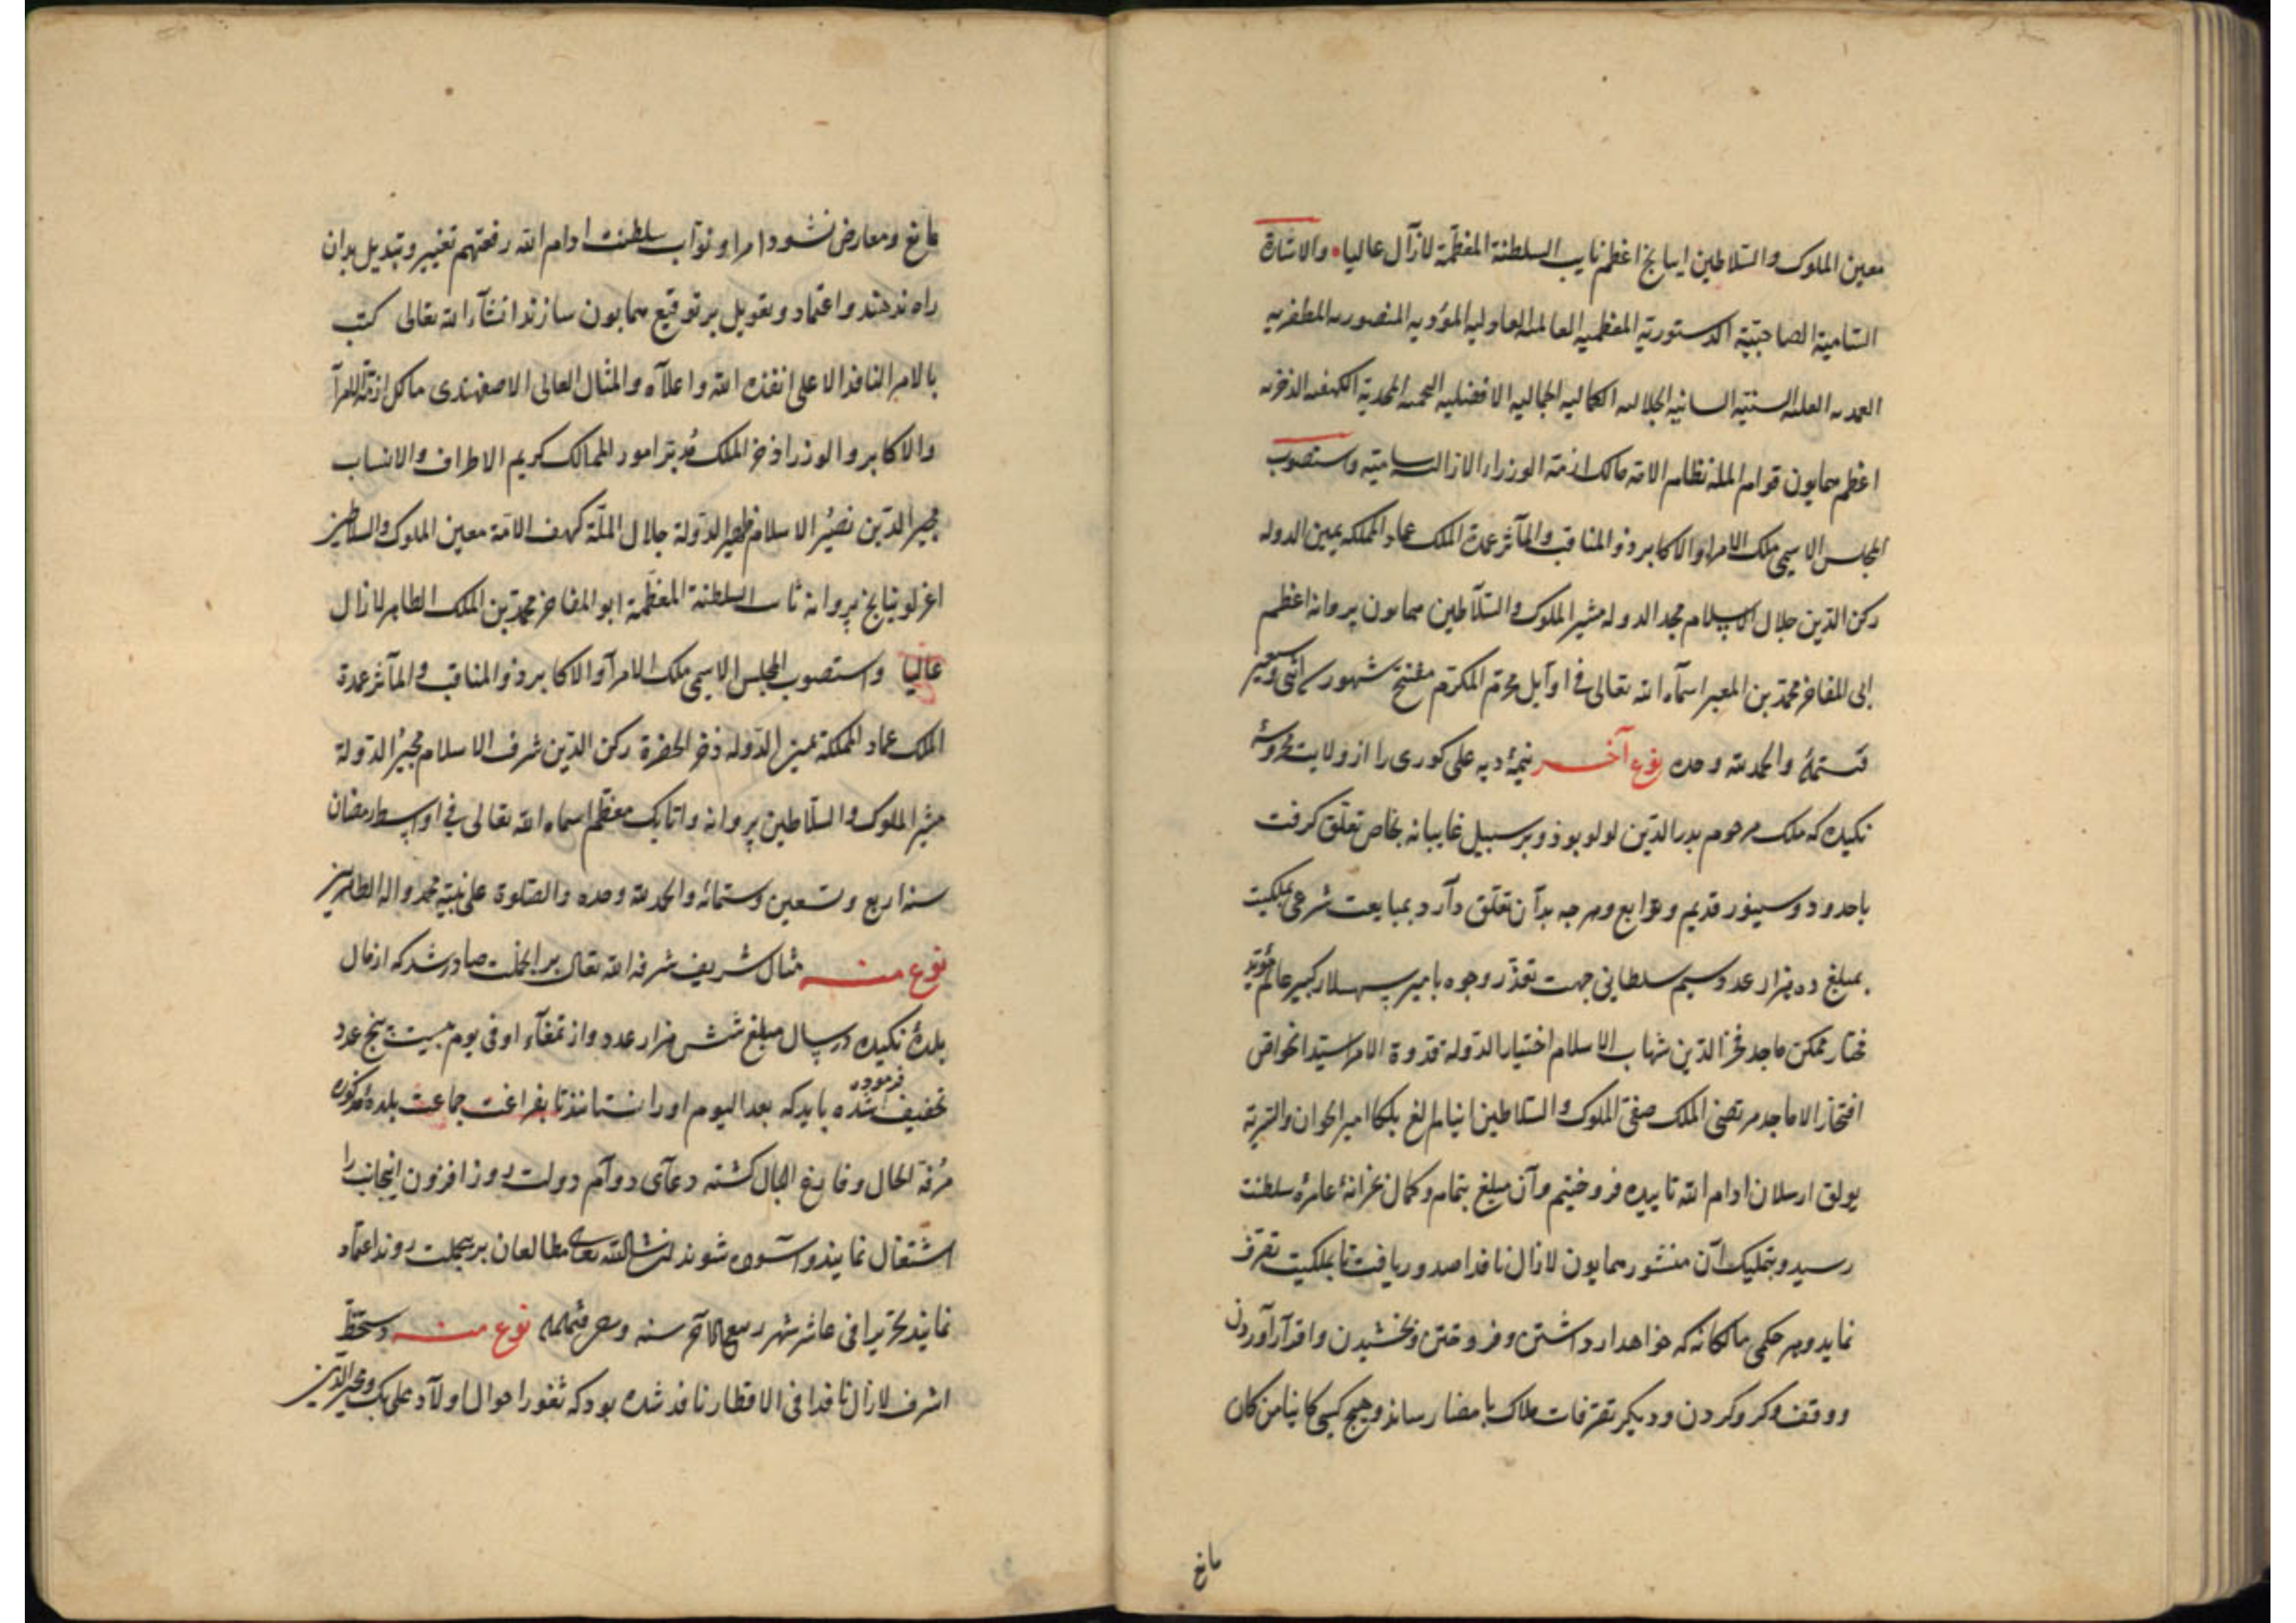 معین الملوک والسّلاطین اینانج اعظم نایب السلطنة المعظّمة لازآل عالیا • والاشارة
السّامیة الصاحبیّة الدستوریّة المعظمیه العالمیه العادلیه المؤیدیه المنصوریه المظفریه
العلیه السنیّة الجلالیه الکمالیه الجمالیه الافضلیه المحمدیّة الکهفیه الذخریه
اعظم همایون قوام المله نظام الامّه مالک ازمّة الوزراء لازالت سامیّه واستصوب
المجلس الاسمی ملک الامراء والاکابر ذو المناقب والمآثر عمدة الملک عماد المملکه یمین الدوله
رکن الدّین جلال الاسلام مجد الدوله مشیر الملوک والسّلاطین همایون پروانه اعظم
ابی المفاخر محمّد بن المعبر اسمآه الله تعالی فی اوآیل محرّم المکرّم مفتتح شهور سنه اثنی وسبعین
وستمائه والحمد لله وحده نوع آخر نیمهٔ دیه علی کوری را از ولایت محروسهٔ
نکیده که ملک مرحوم بدر الدّین لولو بوذ و بر سبیل غایبانه بخاص تعلّق کرفت
باحدود و سینور قدیم و توابع و هرچه بدآن تعلّق دآرد بمبایعت شرعی بملکیت
بمبلغ ده هزار عدد سیم سلطانی جهت تعذّر وجوه بامیر سپهسلار کبیر عالم مؤیّد
مختار ممکن ماجد فخر الدّین شهاب الاسلام اختیار الدّوله قدوة الامراء سیّد الخواص
افتخار الاماجد مرتضی الملک صفیّ الملوک والسّلاطین اینانج الغ بلکا امیر اخوان والتربة
یولق ارسلان ادام الله تاییده فروختیم و آن مبلغ بتمام و کمال بخزانهٔ عامرهٔ سلطنت
رسید و بتملیک آن منشور همایون لازال نافذا صدور یافت تا بملکیت تصرّف
نماید و هر حکمی مالکانه که خواهد از داشتن و فروختن و بخشیدن و اقرآر آوردن
و وقف و کرو کردن و دیکر تصرّفات ملاک بامضا رساند و هیچ کسی کاینا من کان
مانع
مانع و معارض نشود امرا و نوّاب سلطنت ادام الله رفعتهم تغییر و تبدیل بدان
راه ندهند و اعتماد و تعویل بر توقیع همایون سازند انشآء الله تعالی کتب
بالامر النافذ الاعلی انفذه الله واعلآه والمثال العالی الاصفهبدی مالک ازمّة الامرآء
والاکابر والوزرا ذخر الملک مُدبّر امور الممالک کریم الاطراف والانساب
مجیر الدّین نصیر الاسلام ظهیر الدّولة جلال الملّة کهف الامّة معین الملوک والسلاطین
اغرلو اینانج پروانه نائب السلطنة المعظّمة ابو المفاخر محمّد بن الملک الطاهر لازال
عالیا واستصوب المجلس الاسمی ملک الامرآء والاکابر ذو المناقب والمآثر عمدة
الملک عماد المملکة یمین الدّوله ذخر الحضرة رکن الدّین شرف الاسلام مجیر الدّولة
مشیر الملوک والسّلاطین پروانه و اتابک معظّم اسماه الله تعالی فی اواسط رمضان
سنه اربع وتسعین وستمائه والحمد لله وحده والصّلوة علی نبیّه محمد واله الطاهرین
نوع منه مثال شریف شرفه الله تعالی بر آن جملت صادر شد که از مال
بلدهٔ نکیده در سال مبلغ شش هزار عدد و از تمغآء او فی یوم بیست پنج عدد
تخفیف فرموده شده باید که بعد الیوم او را نستانند تا بفراغت جماعت بلدهٔ مذکوره
مُرفّه الحال و فارغ البال کشته دعآی دوآم دولت روز افزون اینجانب را
اشتغال نمایند و آسوده شوند انشاالله تعالی مطالعان بر این جملت روند اعتماد
نمایند تحریرا فی عاشر شهر ربیع الآخر سنه نوع منه دستخطّ
اشرف لازال نافذا فی الاقطار نافذ شده بود که ثغور احوال اولآد علی بک و مجیر الدّین